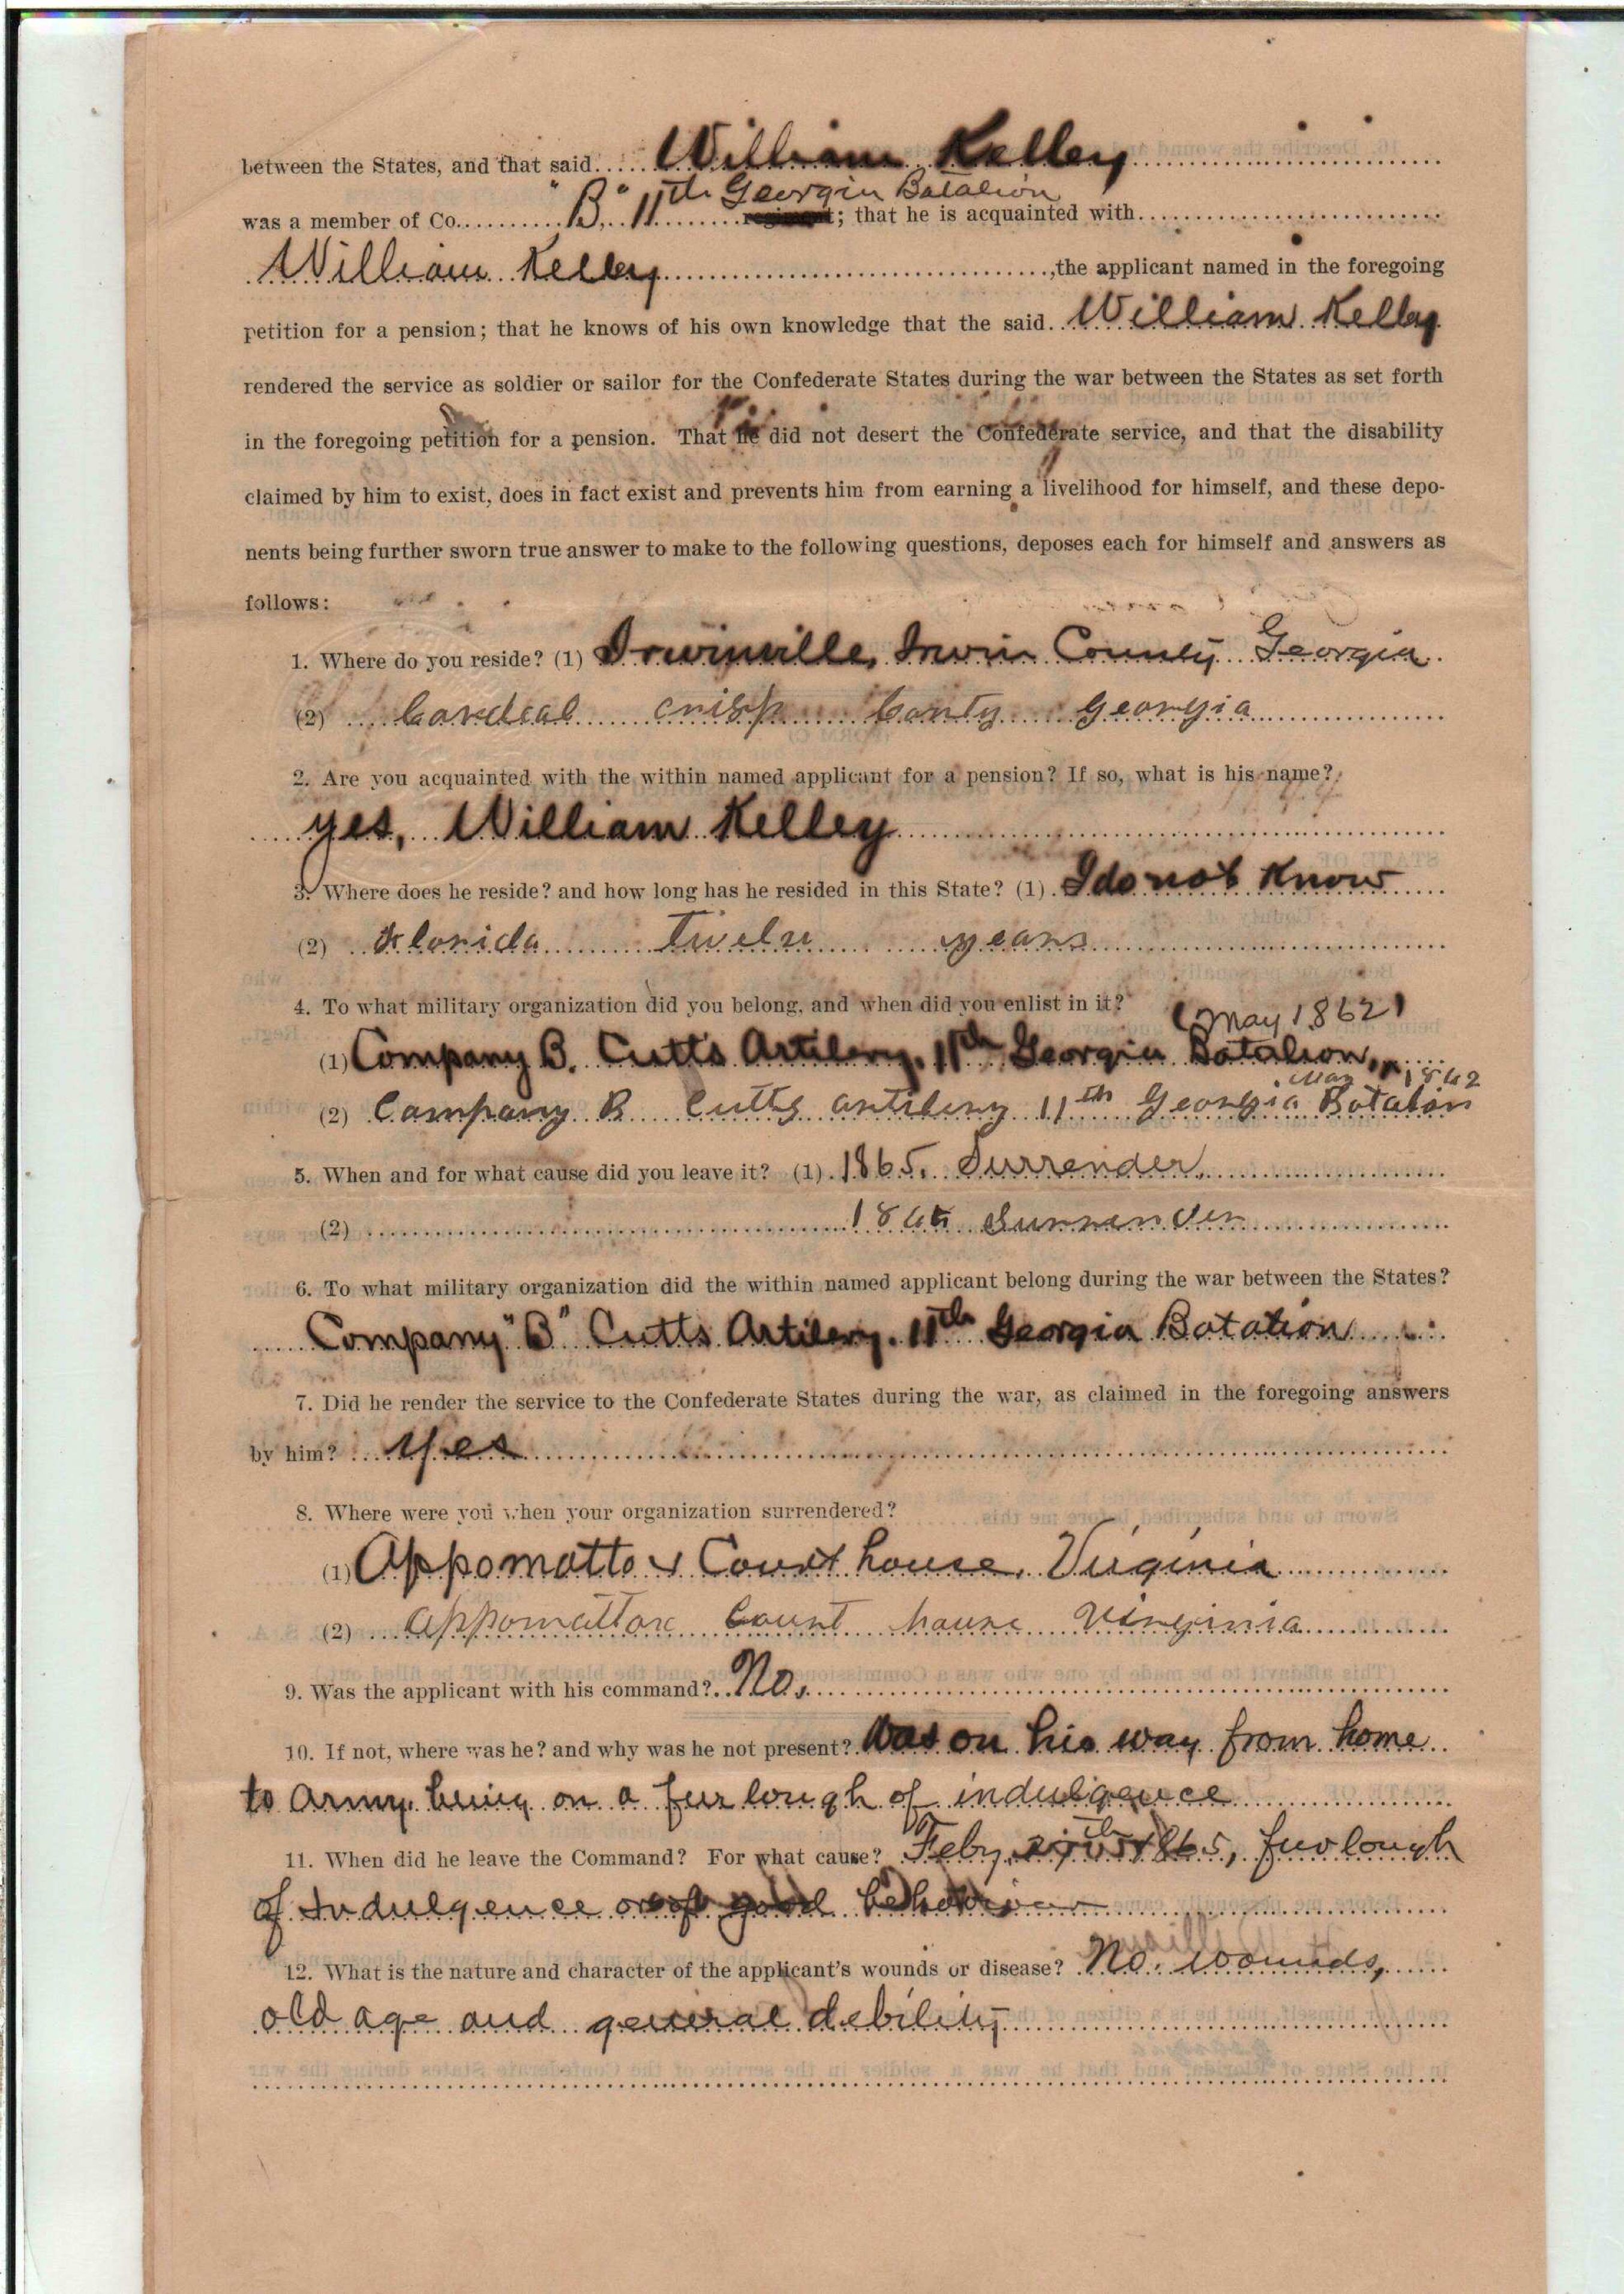 between the States, and that said..... William Kelley
was a member of Co. "B". 11th Georgia Batalion regiment; that he is acquainted with
William Kelley, the applicant named in the foregoing
petition for a pension; that he knows of his own knowledge that the said. William Kelley
rendered the service as soldier or sailor for the Confederate States during the war between the States as set forth
in the foregoing petition for a pension. That he did not desert the Confederate service, and that the disability
claimed by him to exist, does in fact exist and prevents him from earning a livelihood for himself, and these depo-
nents being further sworn true answer to make to the following questions, deposes each for himself and answers as
follows:
1. Where do you reside? (1) Irwinville, Irwin County Georgia
(2) Cordeal crisp County Georgia
2. Are you acquainted with the within named applicant for a pension? If so, what is his name?
yes, William Kelley
3. Where does he reside? and how long has he resided in this State? (1) I do not know
(2) Florida Twelve years
4. To what military organization did you belong, and when did you enlist in it?
(May 1862)
(1) Company B. Cutts Artilery, 11th Georgia Batalion,
May 1862
(2) Company B Cutts artilery 11th Georgia Batalion
5. When and for what cause did you leave it? (1) 1865. Surrender
(2) 1865 Surrender
6. To what military organization did the within named applicant belong during the war between the States?
Company "B" Cutts Artilery. 11th Georgia Batalion
7. Did he render the service to the Confederate States during the war, as claimed in the foregoing answers
by him? Yes
8. Where were you when your organization surrendered?
(1) Appomattox Court house, Virginia
(2) Appomattox Court house Virginia
9. Was the applicant with his command? No.
10. If not, where was he? and why was he not present? Was on his way from home
to army, being on a furlough of indulgence
11. When did he leave the Command? For what cause? Feby, 1865, furlough
of Indulgence
12. What is the nature and character of the applicant's wounds or disease? No. wounds,
old age and general debility